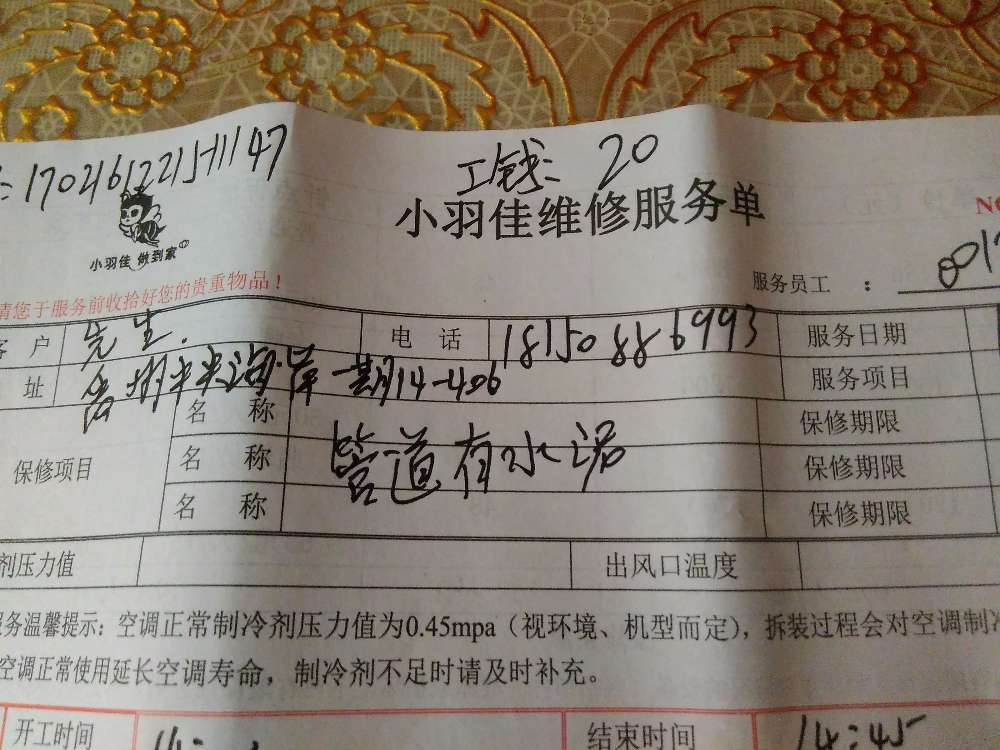 : 17021612215-11147
工钱: 20
小羽佳维修服务单
NO
小羽佳 做到家
请您于服务前收拾好您的贵重物品！
服务员工 ： 001
客 户 先生. 电 话 18150886993 服务日期
址 一期14-406 服务项目
保修项目 名 称 保修期限
名 称 管道有水浴 保修期限
名 称 保修期限
剂压力值 出风口温度
服务温馨提示: 空调正常制冷剂压力值为0.45mpa（视环境、机型而定），拆装过程会对空调制冷
空调正常使用延长空调寿命，制冷剂不足时请及时补充。
开工时间 结束时间 14:45